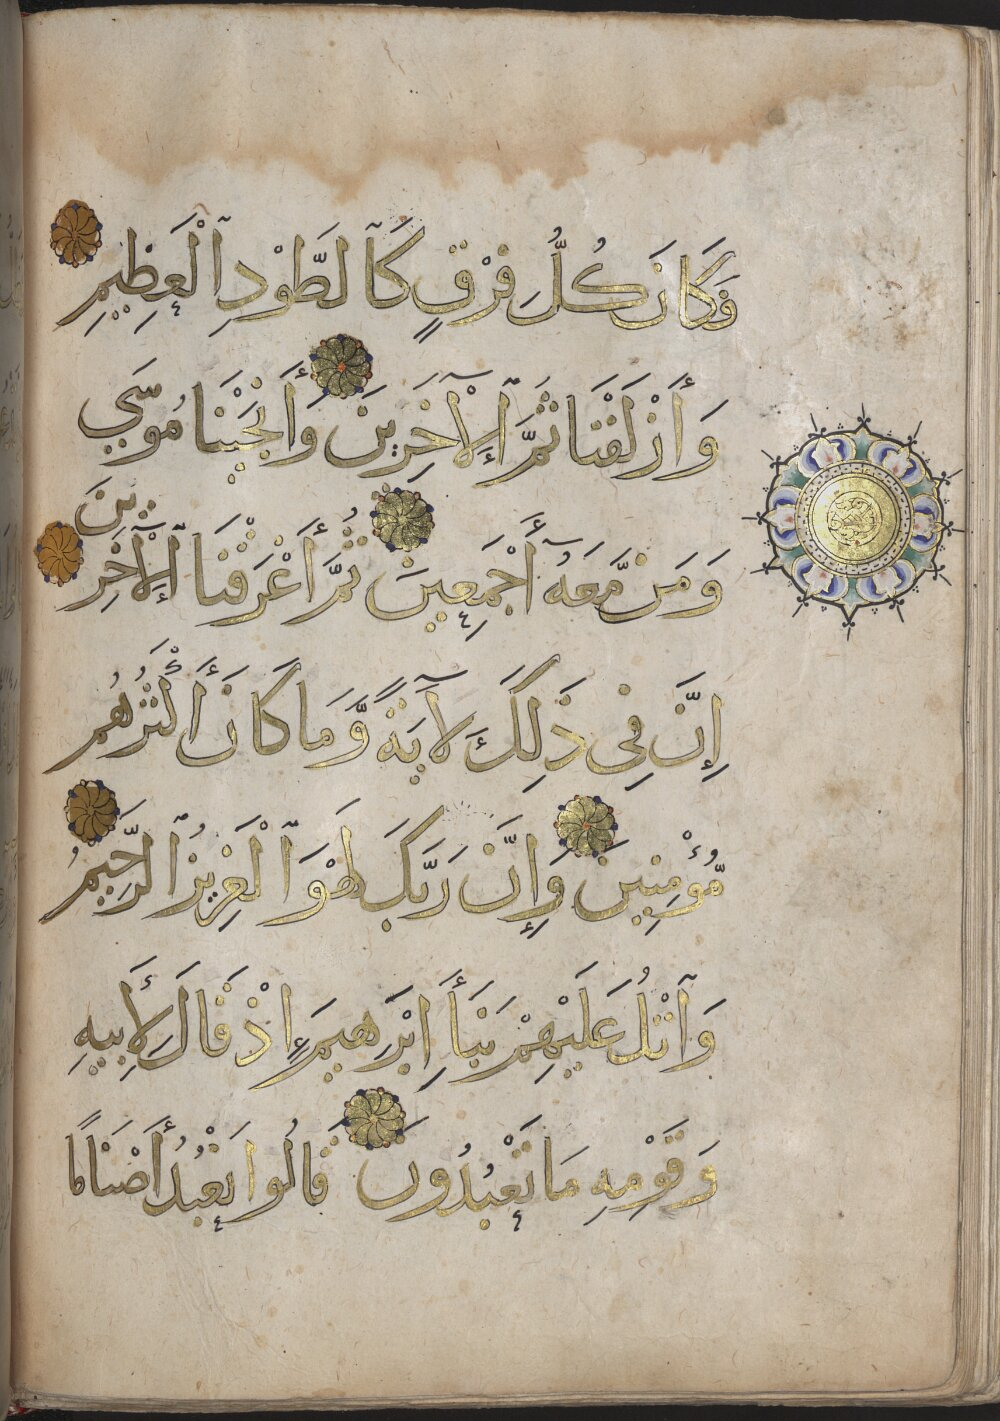 فَكَانَ كُلُّ فِرْقٍ كَٱلطَّوْدِ ٱلْعَظِيمِ
وَأَزْلَفْنَا ثَمَّ ٱلْأٓخَرِينَ وَأَنْجَيْنَا مُوسَي
وَمَن مَّعَهُٓ أَجْمَعِينَ ثُمَّ أَغْرَقْنَا ٱلْأٓخَرِينَ
إِنَّ فِي ذَلِكَ لَأٓيَةً وَّمَا كَانَ أَكْثَرُهُمْ
مُّؤْمِنِينَ وَإِنَّ رَبَّكَ لَهْوَ ٱلْعَزِيزُ ٱلرَّحِيمُ
وَٱتْلُ عَلَيْهِمْ نَبَأَ إِبْرَهِيمَ إِذْ قَالَ لِأَبِيهِ
وَقَوْمِهِ مَا تَعْبُدُونَ قَالُوا نَعْبُدُ أَصْنَامًا